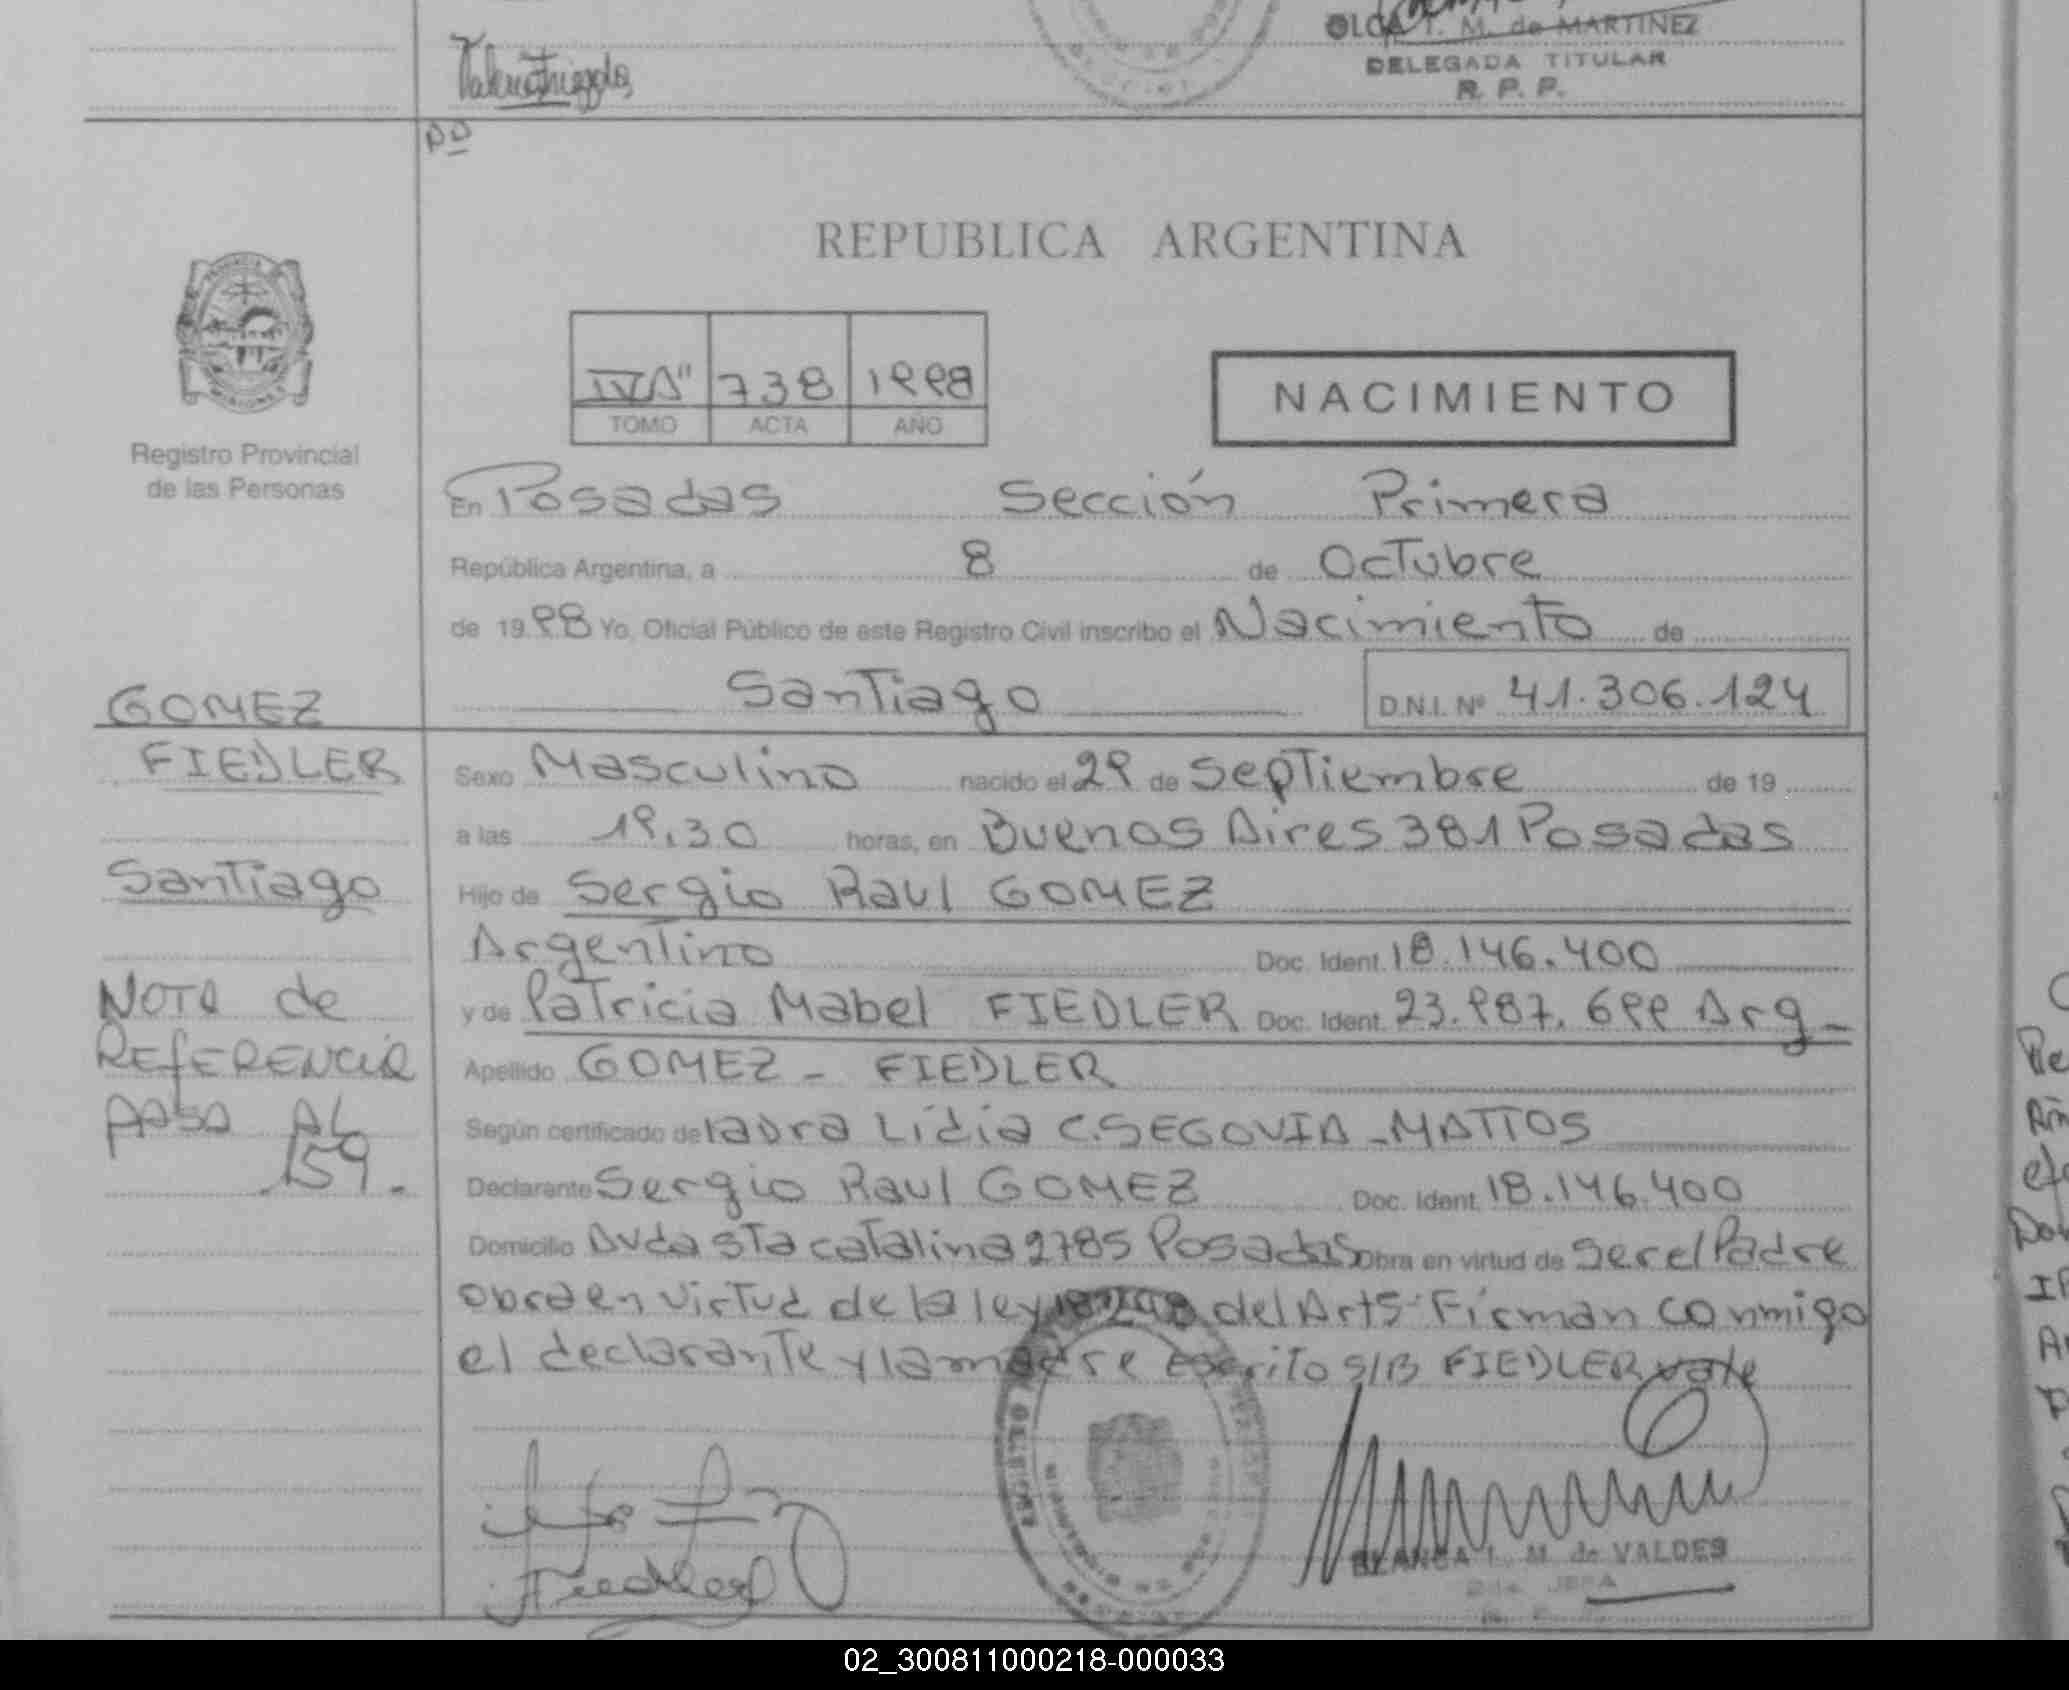 OLGA T. M. de MARTINEZ
DELEGADA TITULAR
R. P. P.
REPUBLICA ARGENTINA
PROVINCIA
MISIONES
Registro Provincial
de las Personas
IV"A" 738 1998
TOMO ACTA AÑO
NACIMIENTO
En Posadas Sección Primera
República Argentina, a 8 de Octubre
de 1998 Yo, Oficial Público de este Registro Civil inscribo el Nacimiento de
Santiago D.N.I. Nº 41.306.124
GOMEZ
FIEDLER
Santiago
NOTA de
REFERENCIA
PASA AL
159.
Sexo Masculino nacido el 29 de Septiembre de 19
a las 19.30 horas, en Buenos Aires 381 Posadas
Hijo de Sergio Raul GOMEZ
Argentino Doc. Ident. 18.146.400
y de Patricia Mabel FIEDLER Doc. Ident. 23.987.699 Arg
Apellido GOMEZ - FIEDLER
Según certificado de la Dra Lidia C. SEGOVIA - MATTOS
Declarante Sergio Raul GOMEZ Doc. Ident. 18.146.400
Domicilio Avda Sta Catalina 2785 Posadas Obra en virtud de Ser el Padre
obra en virtud de la ley 18248 del Art 5 Firman conmigo
el declarante y la madre Escrito S/B FIEDLER vale
Fiedler
BLANCA I. M. de VALDES
2da. JEFA
02_300811000218-000033